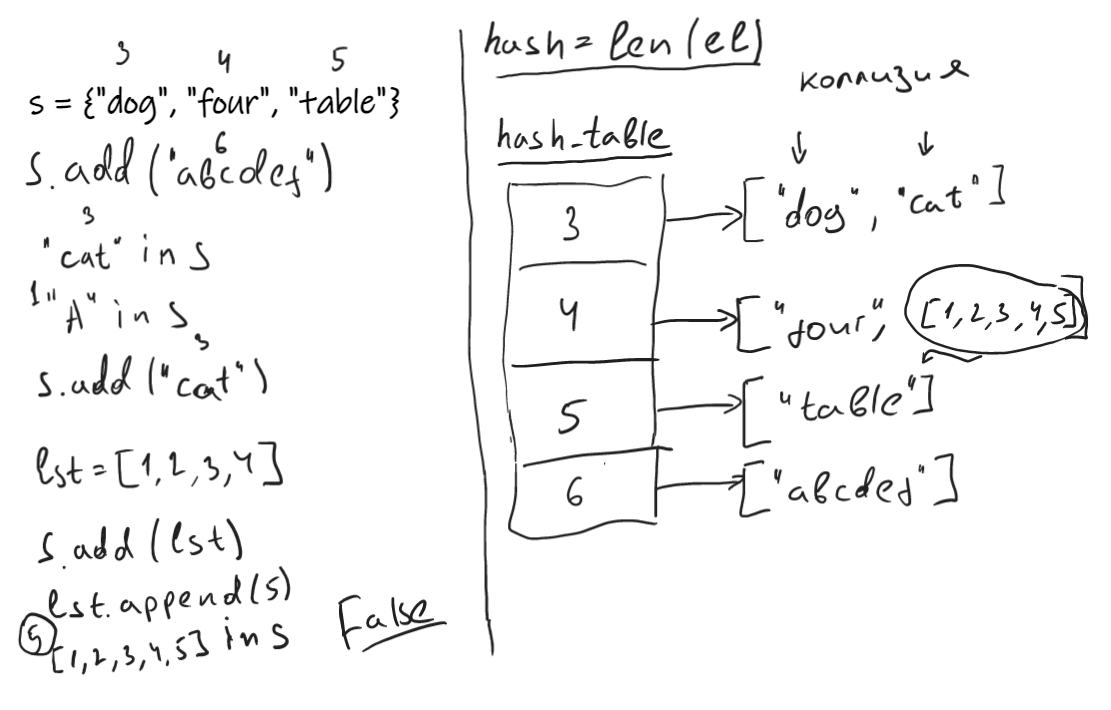 3 4 5
s = {"dog", "four", "table"}
6
s.add("abcdef")
3
"cat" in s
1
"A" in s
3
s.add("cat")
lst = [1,2,3,4]
s.add(lst)
lst.append(5)
5
[1,2,3,4,5] in s
False
hash = len(el)
коллизия
hash_table
3 ["dog", "cat"]
4 ["four", [1,2,3,4,5]]
5 ["table"]
6 ["abcdef"]